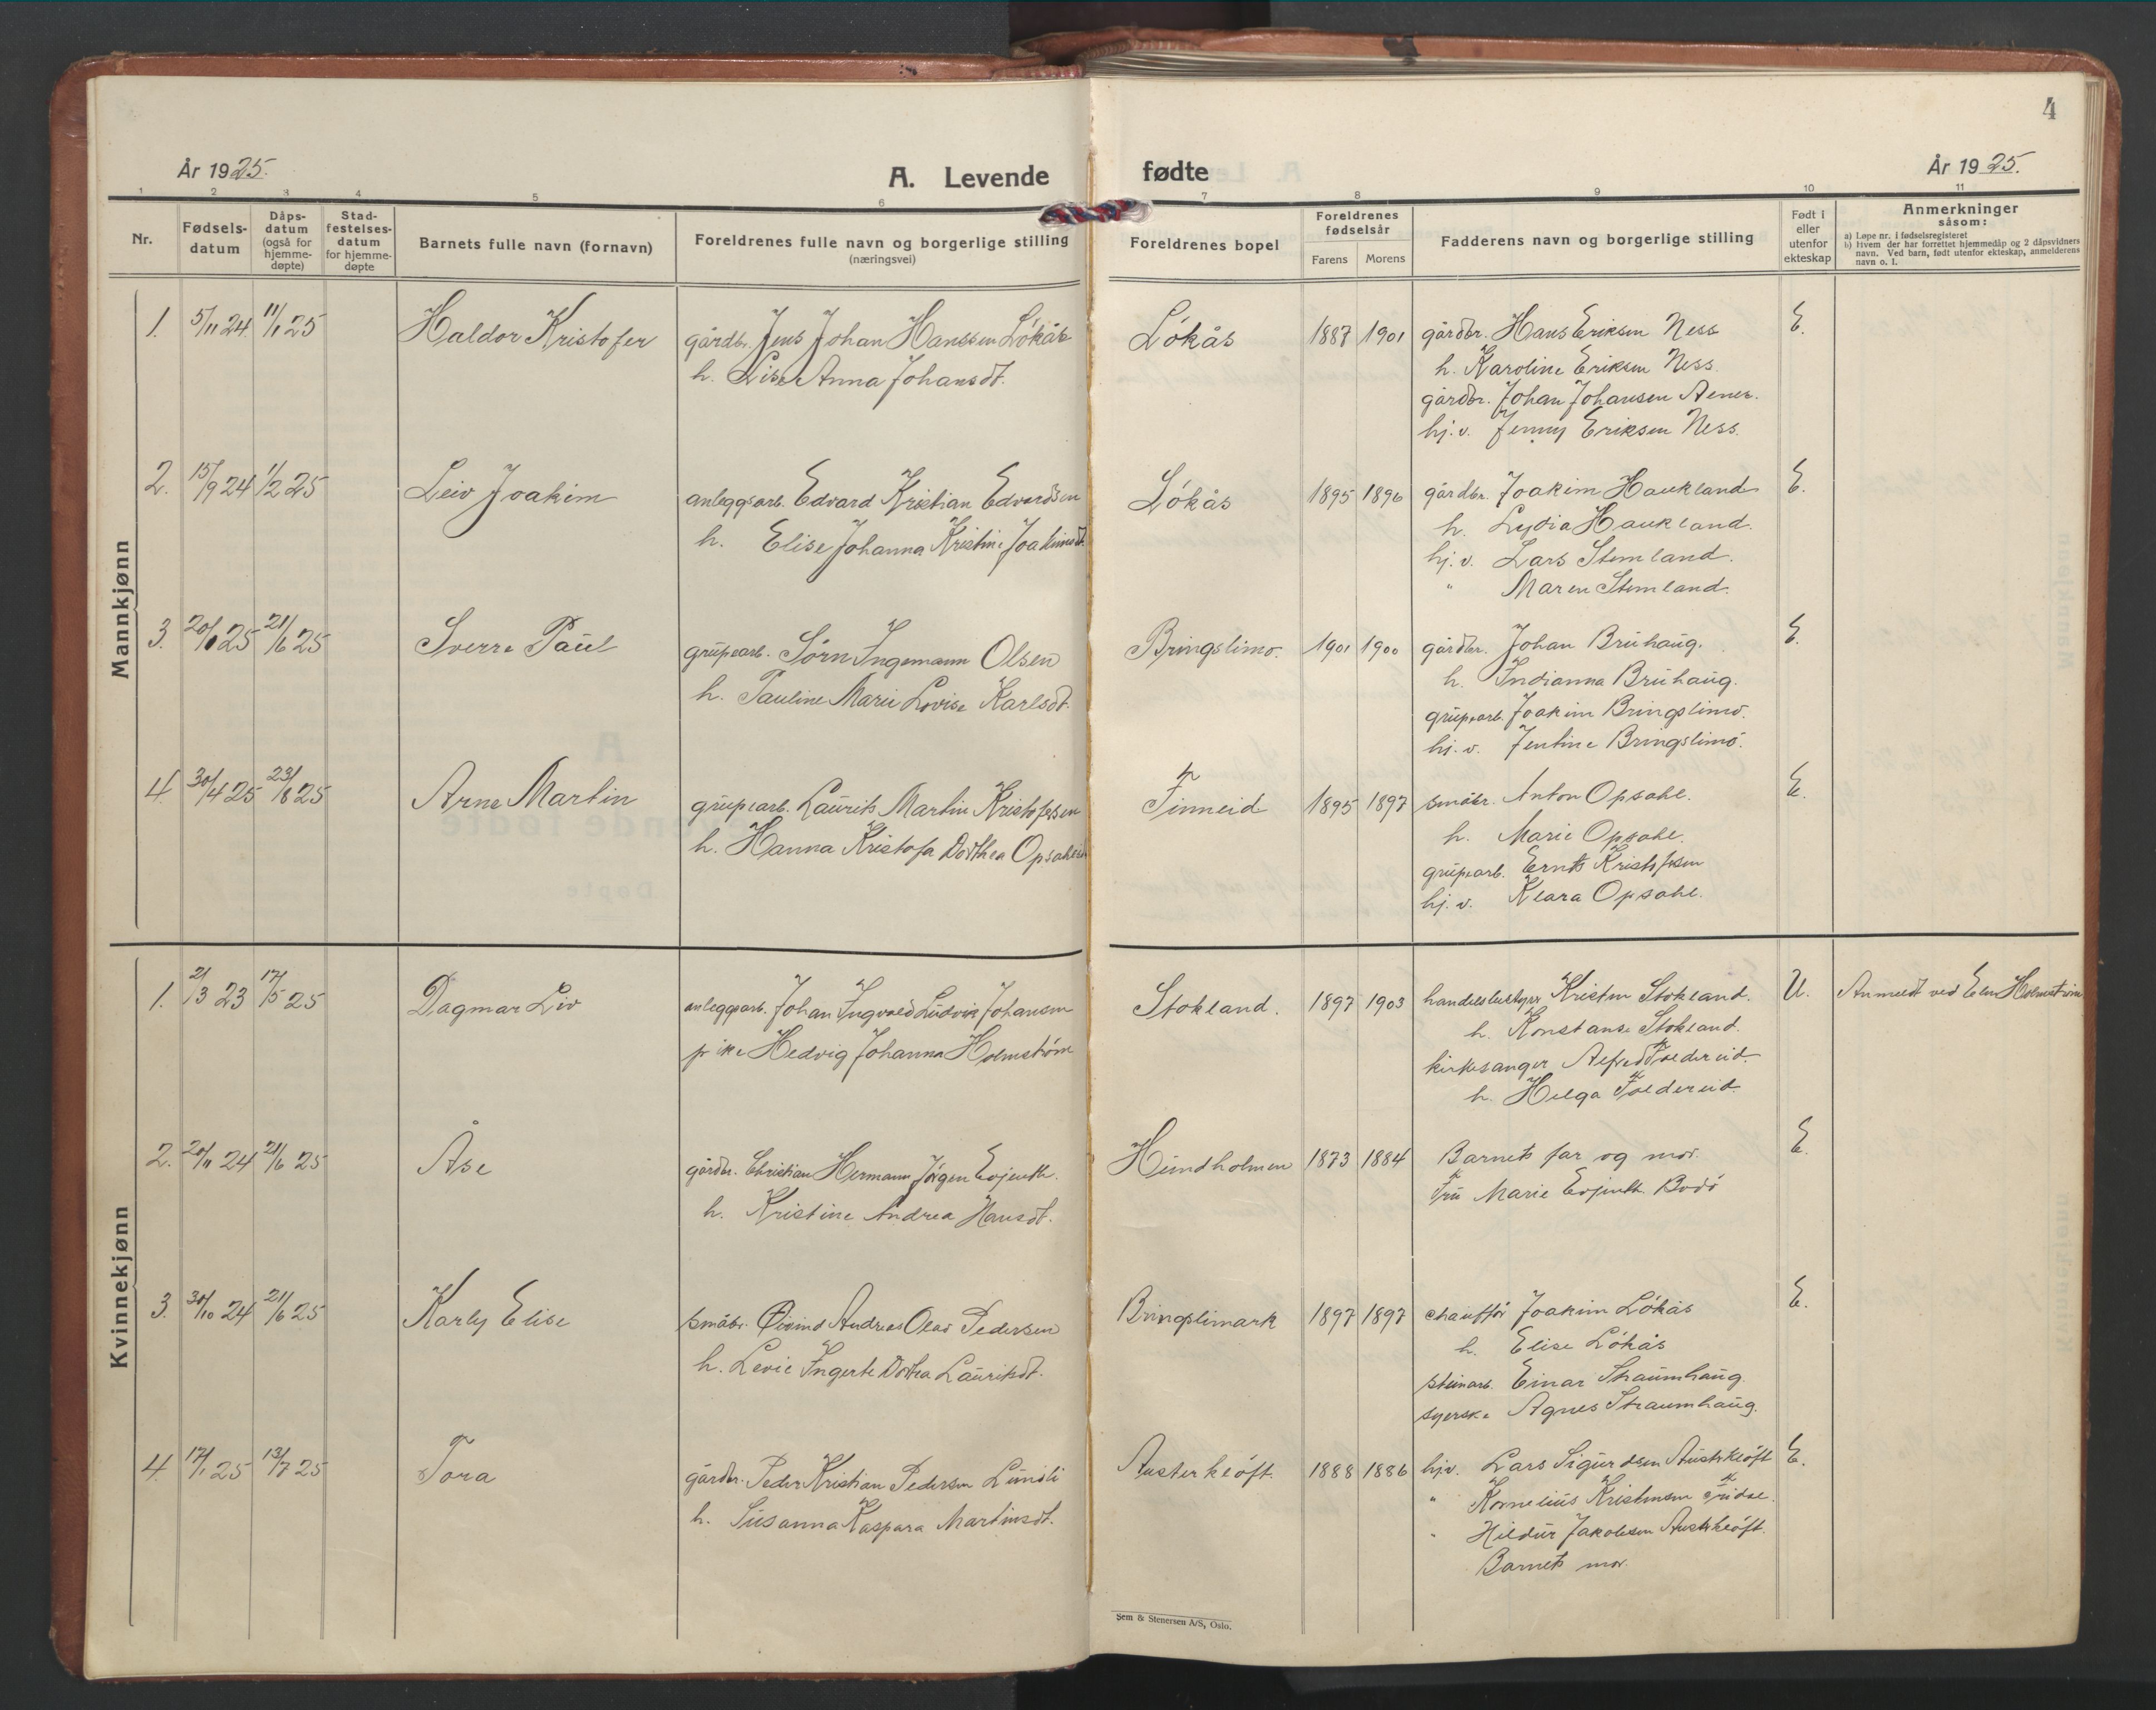 4
År 1925.
A. Levende fødte
År 1925.
1 2 3 4 5 6 7 8 9 10 11
Nr.
Fødsels-
datum
Dåps-
datum
(også for
hjemme-
døpte)
Stad-
festelses-
datum
for hjemme-
døpte
Barnets fulle navn (fornavn)
Foreldrenes fulle navn og borgerlige stilling
(næringsvei)
Foreldrenes bopel
Foreldrenes
fødselsår
Farens Morens
Fadderens navn og borgerlige stilling
Født i
eller
utenfor
ekteskap
Anmerkninger
såsom:
a) Løpe nr. i fødselsregisteret
b) Hvem der har forrettet hjemmedåp og 2 dåpsvidners
navn. Ved barn, født utenfor ekteskap, anmelderens
navn o. l.
Mannkjønn
1. 5/11 24 11/1 25 Haldor Kristofer gårdbr. Jens Johan Hanssen Løkås Løkås 1887 1901 gårdbr. Hans Eriksen Ness E.
h. Lise Anna Johansdt. h. Karoline Eriksen Ness.
gårdbr. Johan Johansen
hj. v. Jenny Eriksen Ness.
2. 15/9 24 1/2 25 Leiv Joakim anleggsarb. Edvard Kristian Edvardsen Løkås 1895 1896 gårdbr. Joakim Haukland E.
h. Elise Johanna Kristine Joakimsdt. h. Lydia Haukland.
hj. v. Lars Stemland.
" Maren Stemland.
3. 20/1 25 21/6 25 Sverre Paul grubearb. Sörn Ingemann Olsen Bringslimo. 1901 1900 gårdbr. Johan Bruhaug. E.
h. Pauline Marie Lovise Karlsdt. h. Indianna Bruhaug.
grubearb. Joakim Bringslimo.
hj. v. Jentine Bringslimo.
4. 30/4 25 23/8 25 Arne Martin grubearb. Laurits Martin Kristofersen Finneid 1895 1897 småbr. Anton Opsahl. E.
h. Hanna Kristofa Dorthea h. Marie Opsahl.
grubearb. Kristofersen
hj. v. Klara Opsahl.
Kvinnekjønn
1. 21/3 23 17/5 25 Dagmar Liv anleggsarb. Johan Ingvald Ludvik Johansen Stokland. 1897 1903 handelsbestyrer Kristen Stokland. U. Anmeldt ved Holmstrøm
pike Hedvig Johanna Holmstrøm h. Konstanse Stokland.
kirkesanger Alfred Foldereid.
h. Helga Foldereid.
2. 20/11 24 21/6 25 Åse gårdbr. Christian Hermann Jörgen Evjenth. Hundholmen 1873 1884 Barnets far og mor. E.
h. Kristine Andrea Hansdt. Fru Marie Evjenth. Bodö
3. 30/10 24 21/6 25 Karly Elise småbr. Öivind Andreas Olav Pedersen Bringslimark 1897 1897 chauffør Joakim Løkås E.
h. Levie Dortea Lauritsdt. h. Elise Løkås
steinarb. Einar Straumhaug.
syerske Agnes Straumhaug.
4. 17/1 25 13/7 25 Tora gårdbr. Peder Kristian Pedersen Lundli Austerkløft. 1888 1886 hj. v. Lars Sigurdsen Austerkløft E.
h. Susanna Kaspara Martinsdt. " Kornelius Kristensen
" Hildur Jakobsen Austerkløft.
Barnets mor.
Sem & Stenersen A/S, Oslo.